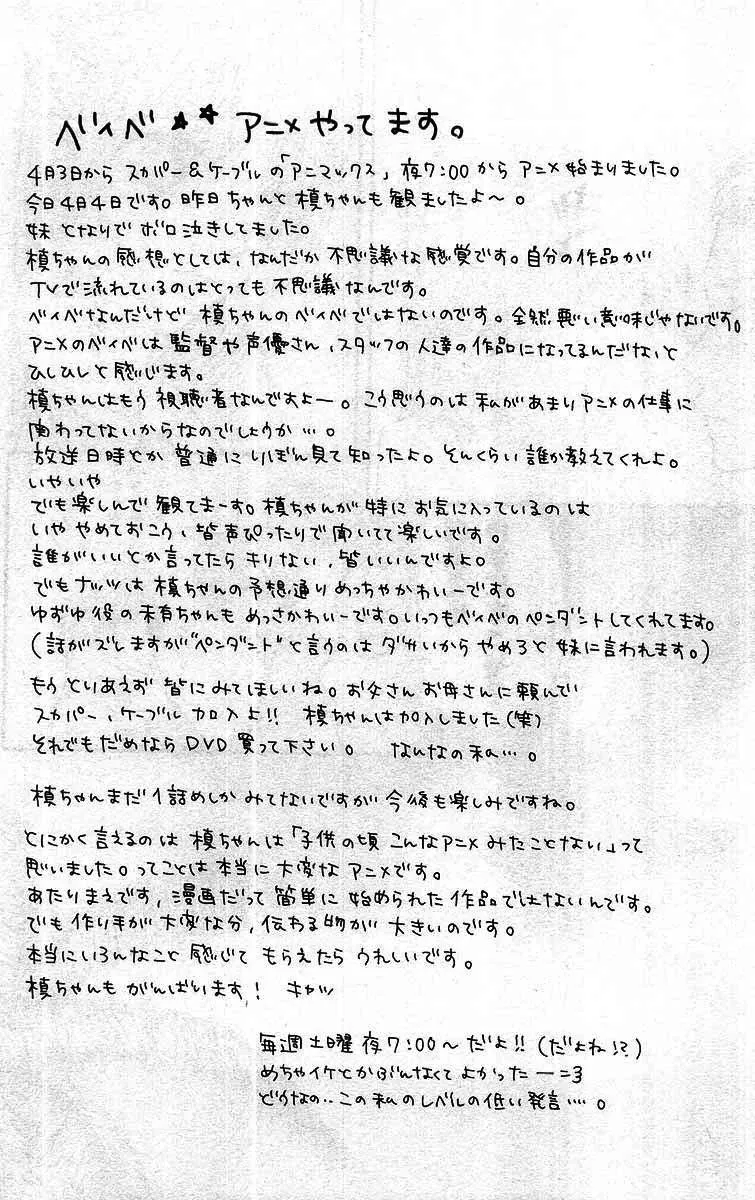 ベイベ☆☆ アニメやってます。
4月3日から スカパー&ケーブルの「アニマックス」夜7:00から アニメ始まりました。
今日4月4日です。昨日ちゃんと槙ちゃんも観ましたよ〜。
妹 となりで ボロ泣きしてました。
槙ちゃんの感想としては、なんだか不思議な感覚です。自分の作品が
TVで流れているのはとっても不思議なんです。
ベイベなんだけど 槙ちゃんのベイベではないのです。全然悪い意味じゃないです。
アニメのベイベは監督や声優さん、スタッフの人達の作品になってるんだなぁと
ひしひしと感じます。
槙ちゃんはもう視聴者なんですよー。こう思うのは私があまりアニメの仕事に
関わってないからなのでしょうか…。
放送日時とか普通にりぼん見て知ったよ。そんくらい誰か教えてくれよ。
いやいや
でも楽しんで観てまーす。槙ちゃんが特にお気に入っているのは
いや やめておこう、皆声ぴったりで聞いてて楽しいです。
誰がいいとか言ってたらキリない、皆いいんですよ。
でもナッツは槙ちゃんの予想通りめっちゃかわいーです。
ゆずゆ役の未有ちゃんもめっさかわいーです。いっつもベイベのペンダントしてくれてます。
(話がズレますが"ペンダント"と言うのはダサいからやめろと妹に言われます。)
もうとりあえず皆にみてほしいね。お父さんお母さんに頼んで
スカパー、ケーブル加入よ!! 槙ちゃんは加入しました(笑)
それでもだめならDVD買って下さい。 なんなの私…。
槙ちゃんまだ1話めしかみてないですが今後も楽しみですね。
とにかく言えるのは槙ちゃんは「子供の頃こんなアニメみたことない」って
思いました。ってことは本当に大変なアニメです。
あたりまえです、漫画だって簡単に始められた作品ではないんです。
でも作り手が大変な分、伝わる物が大きいのです。
本当にいろんなこと感じてもらえたらうれしいです。
槙ちゃんもがんばります! キャッ
毎週土曜夜7:00〜だよ!!(だよね!?)
めちゃイケとかぶんなくてよかったー=3
どうなの‥この私のレベルの低い発言….。